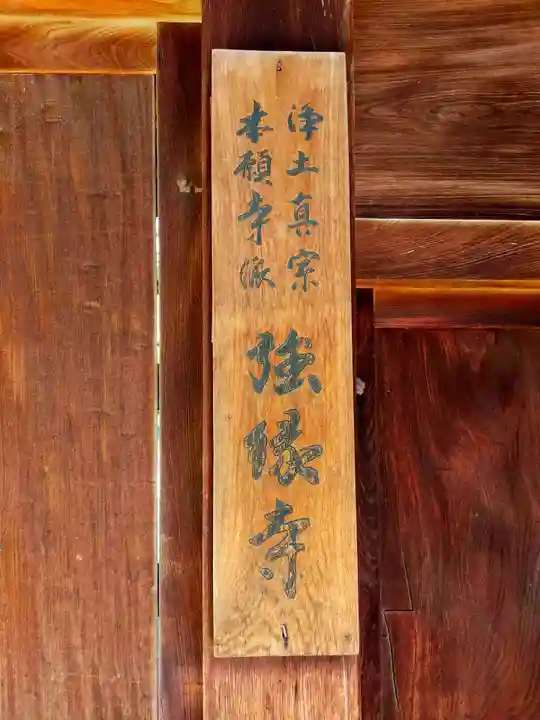 浄土真宗
本願寺派
強縁寺